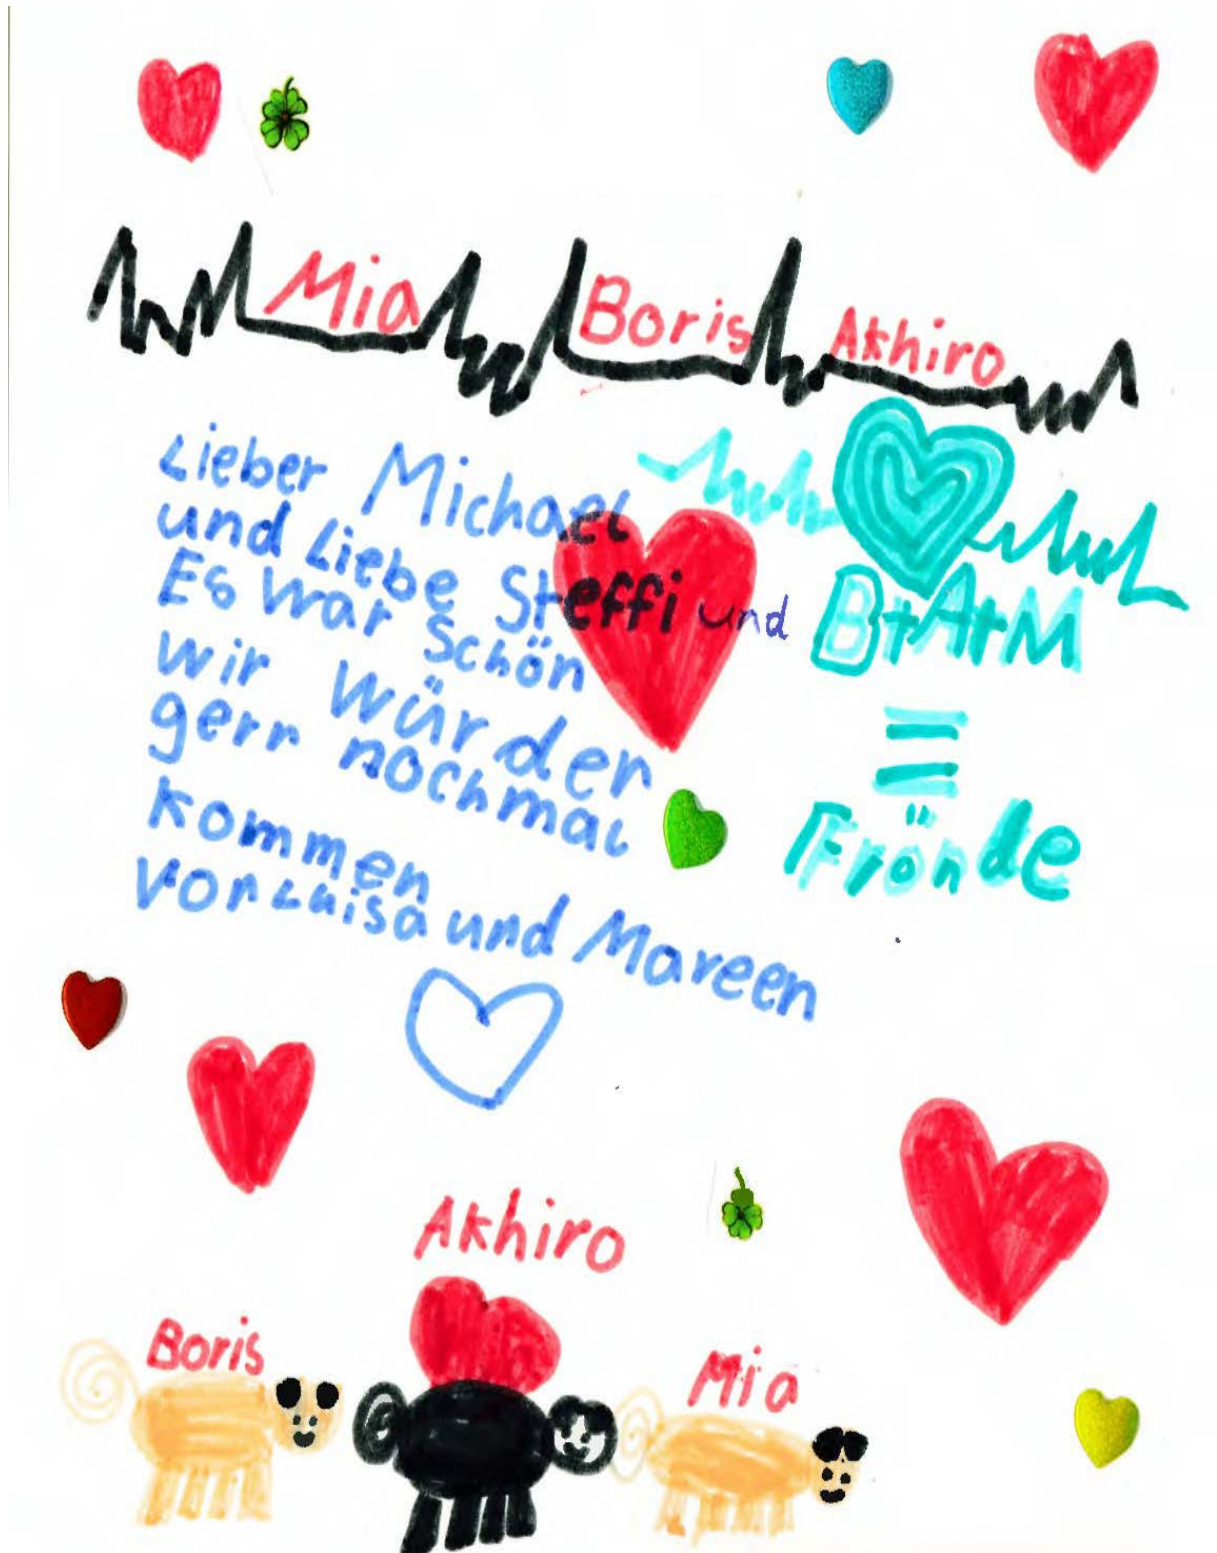 Mia Boris Akhiro
Lieber Michael
und Liebe Steffi und
Es war Schön
wir würder
gerr nochmal
kommen
Vor Luisa und Mareen
B+A+M
=
Frönde
Akhiro
Boris
Mia